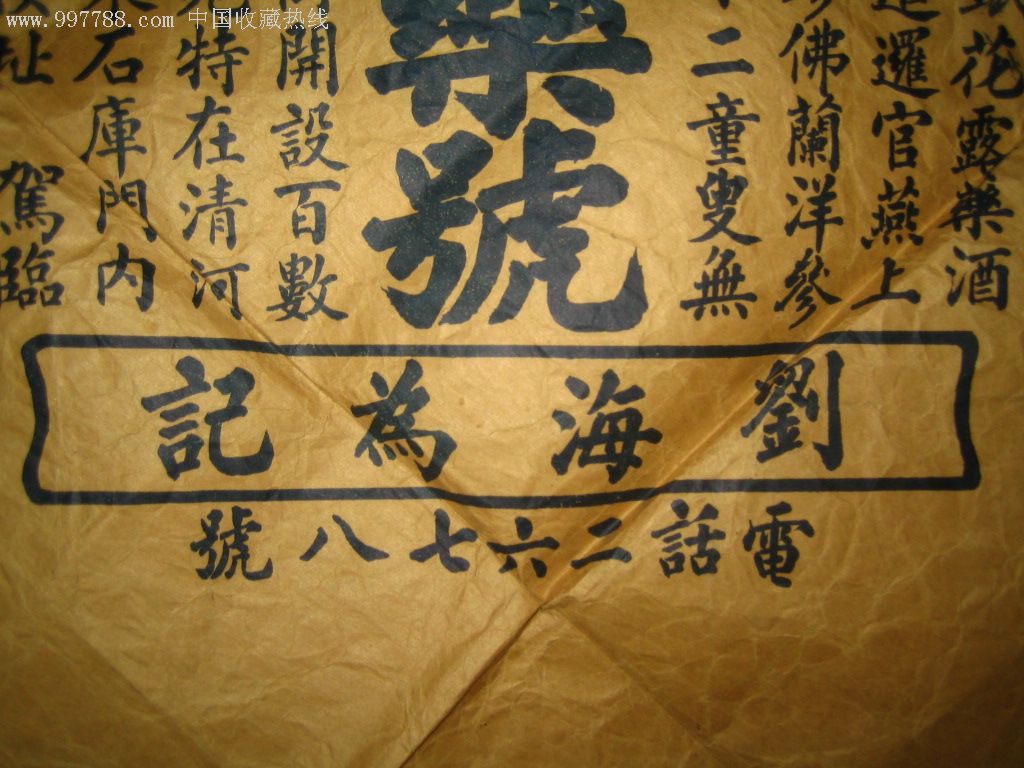 www.997788.com 中国收藏热线
花露藥酒
暹邏官燕上
佛蘭洋參
二童叟無
藥號
開設百數
特在清河
石庫門内
址 駕臨
劉海為記
電話二六七八號